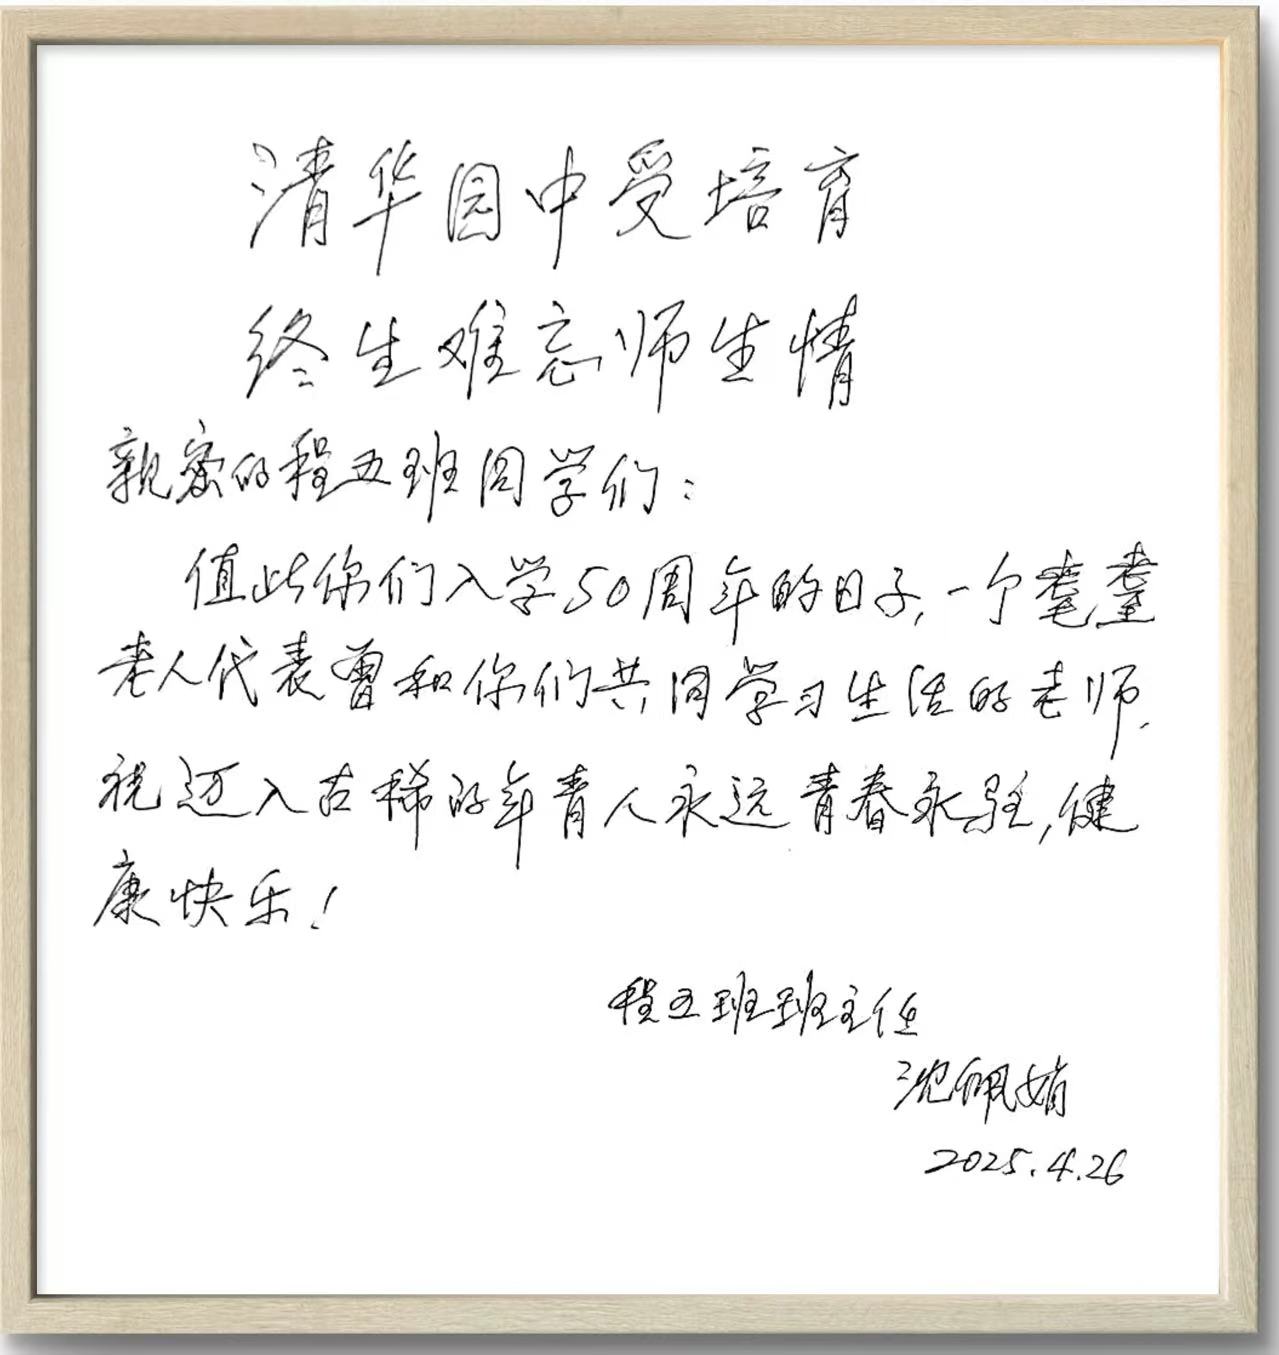 清华园中受培育
终生难忘师生情
亲密的程五班同学们：
值此你们入学50周年的日子，一个耄耋
老人代表曾和你们共同学习生活的老师，
祝迈入古稀的年青人永远青春永驻，健
康快乐！
程五班班主任
沈佩娟
2025.4.26